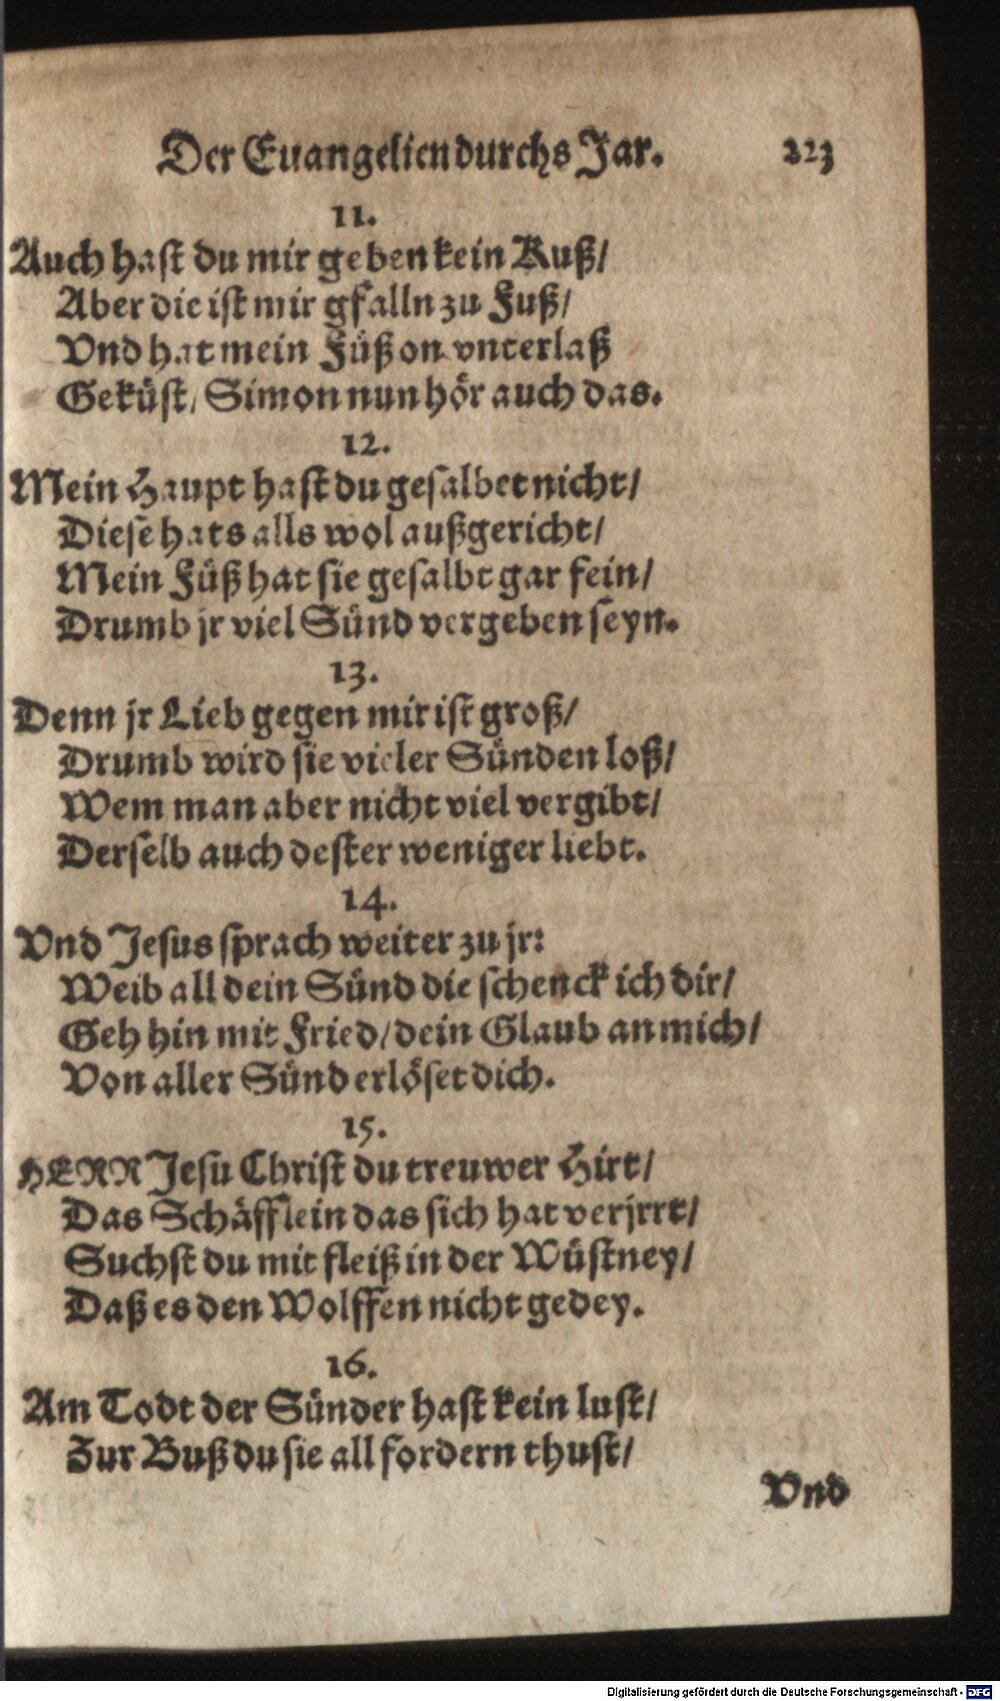 Der Euangelien durchs Jar. 223
11.
Auch hast du mir geben kein Kuß/
Aber die ist mir gfalln zu Fuß/
Vnd hat mein Füß on vnterlaß
Geküst/ Simon nun hör auch das.
12.
Mein Haupt hast du gesalbet nicht/
Diese hats alls wol außgericht/
Mein Füß hat sie gesalbt gar fein/
Drumb jr viel Sünd vergeben seyn.
13.
Denn jr Lieb gegen mir ist groß/
Drumb wird sie vieler Sünden loß/
Wem man aber nicht viel vergibt/
Derselb auch dester weniger liebt.
14.
Vnd Jesus sprach weiter zu jr:
Weib all dein Sünd die schenck ich dir/
Geh hin mit Fried/ dein Glaub an mich/
Von aller Sünd erlöset dich.
15.
HERR Jesu Christ du treuwer Hirt/
Das Schäfflein das sich hat verjrrt/
Suchst du mit fleiß in der Wüstney/
Daß es den Wolffen nicht gedey.
16.
Am Todt der Sünder hast kein lust/
Zur Buß du sie all fordern thust/
Vnd
Digitalisierung gefördert durch die Deutsche Forschungsgemeinschaft - DFG